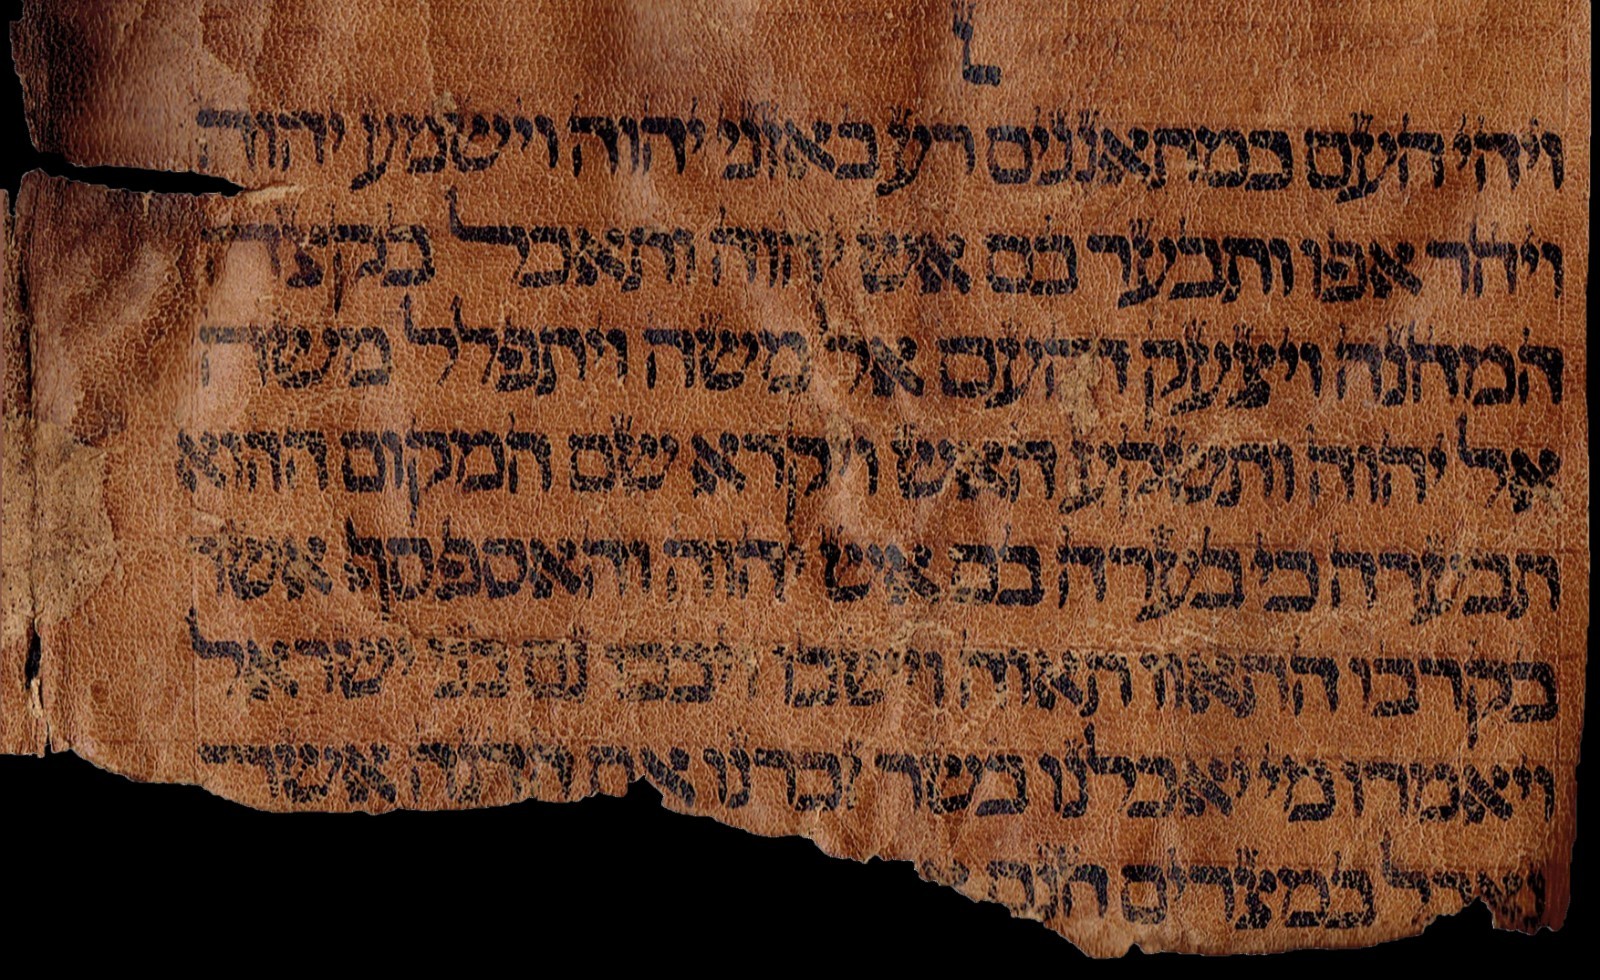 ׆
ויהי העם כמתאננים רע באזני יהוה וישמע יהוה
ויחר אפו ותבער בם אש יהוה ותאכל בקצה
המחנה ויצעק העם אל משה ויתפלל משה
אל יהוה ותשקע האש ויקרא שם המקום ההוא
תבערה כי בערה בם אש יהוה והאספסף אשר
בקרבו התאוו תאוה וישבו ויבכו גם בני ישראל
ויאמרו מי יאכלנו בשר זכרנו את הדגה אשר
נאכל במצרים חנם